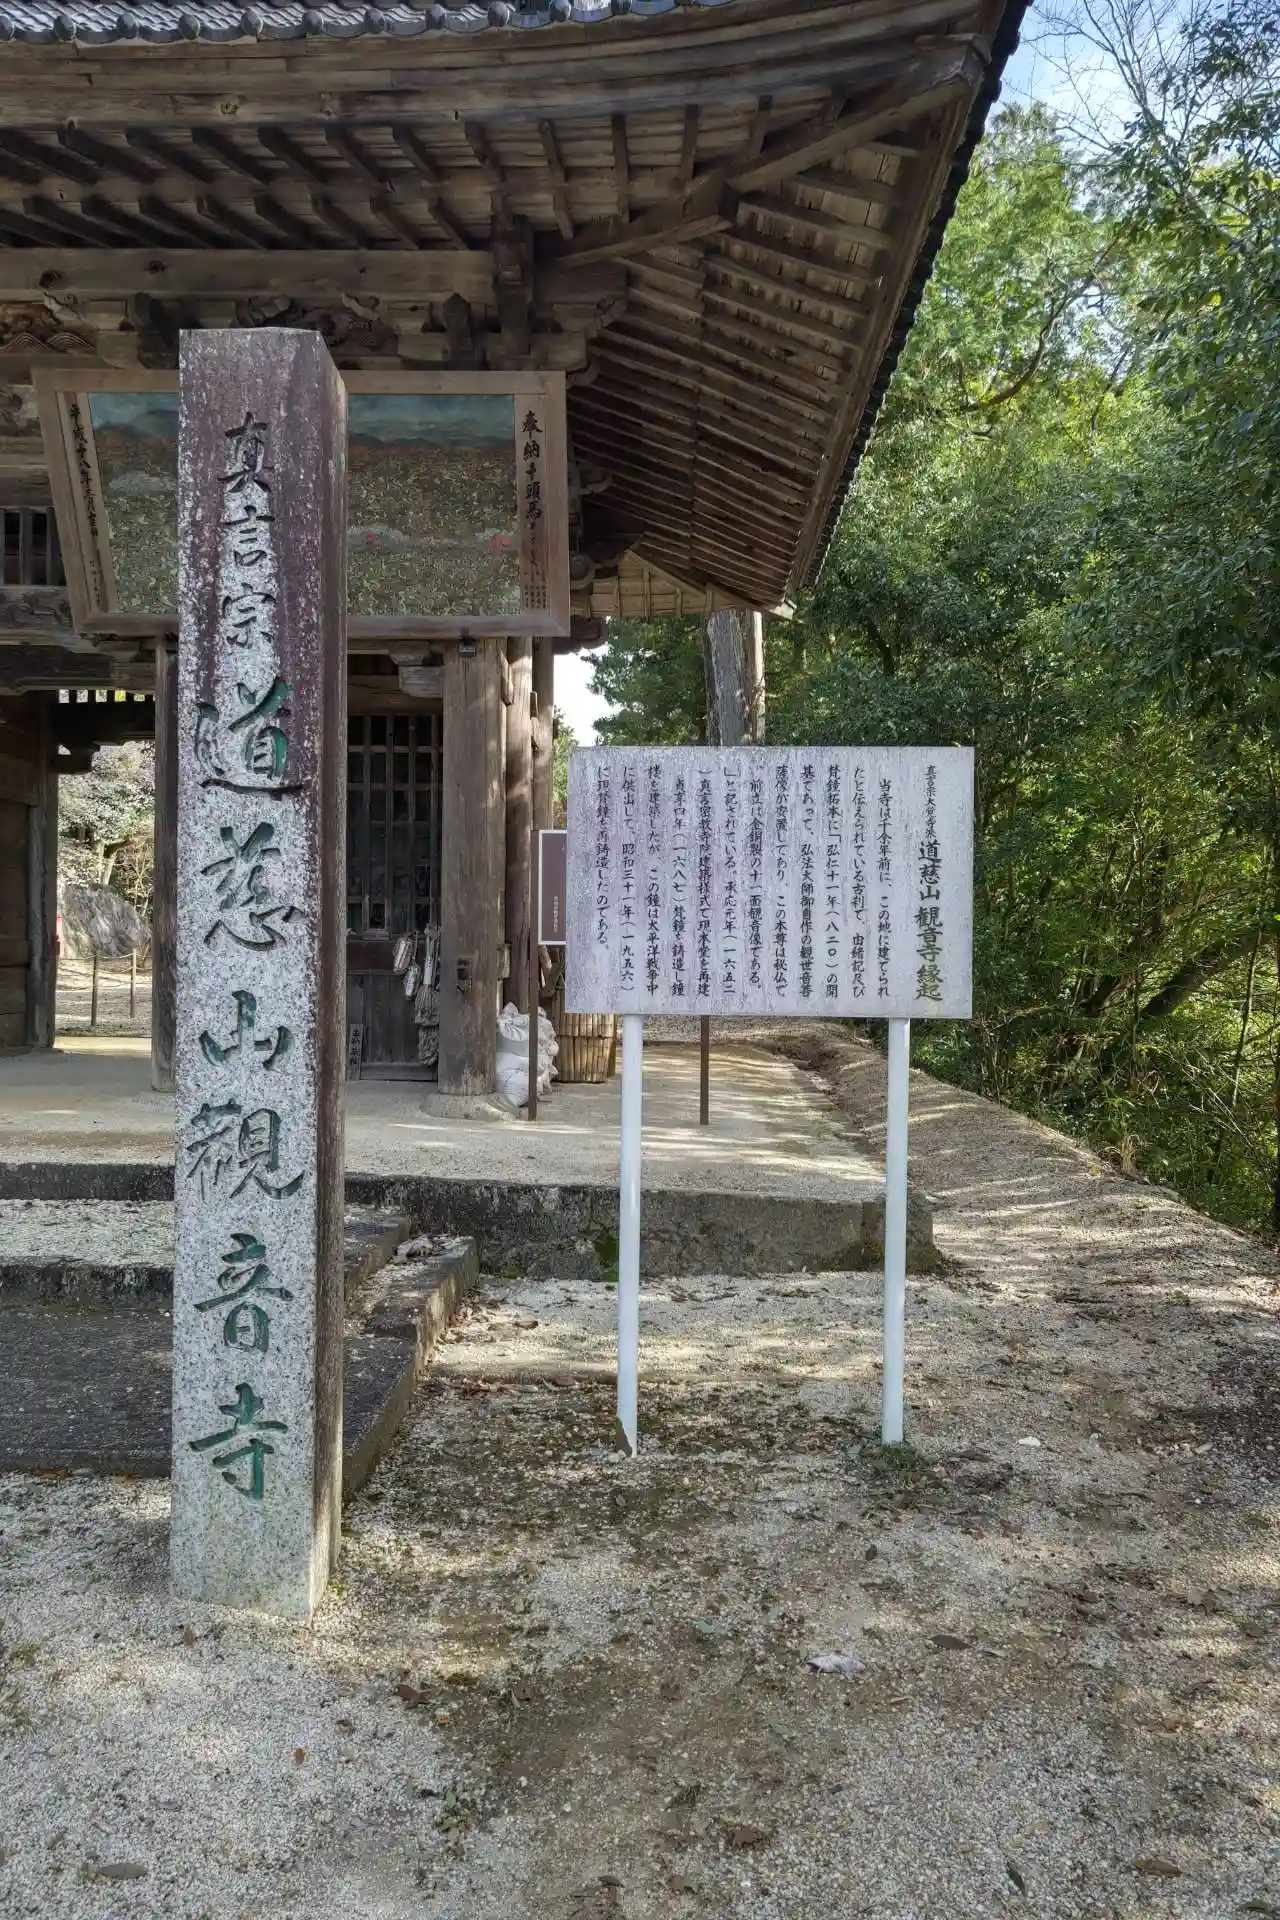 真言宗道慈山観音寺
真言宗大覚寺派道慈山観音寺縁起
当寺は千余年前に、この地に建てられ
たと伝えられている古刹で、由緒記及び
梵鐘拓本に「弘仁十一年(八二〇)の開
基であって、弘法大師御自作の観世音菩
薩像が安置してあり、この本尊は秘仏で
、前立は金銅製の十一面観音像である。
」と記されている。承応元年(一六五二
)真言密教寺院建築様式で現本堂を再建
貞享四年(一六八七)梵鐘を鋳造し鐘
楼を建築したが、この鐘は太平洋戦争中
に供出して、昭和三十一年(一九五六)
に現梵鐘を再鋳造したのである。
奉納千頭馬
平成十八年三月吉日